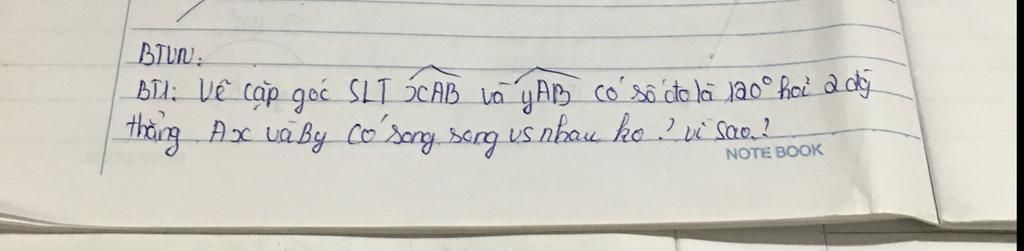 BTVN:
BT1: Vẽ cặp góc SLT xAB và yAB có số đo là 120° hỏi 2 đg
thẳng Ax và By có song song vs nhau ko? vì sao?
NOTE BOOK